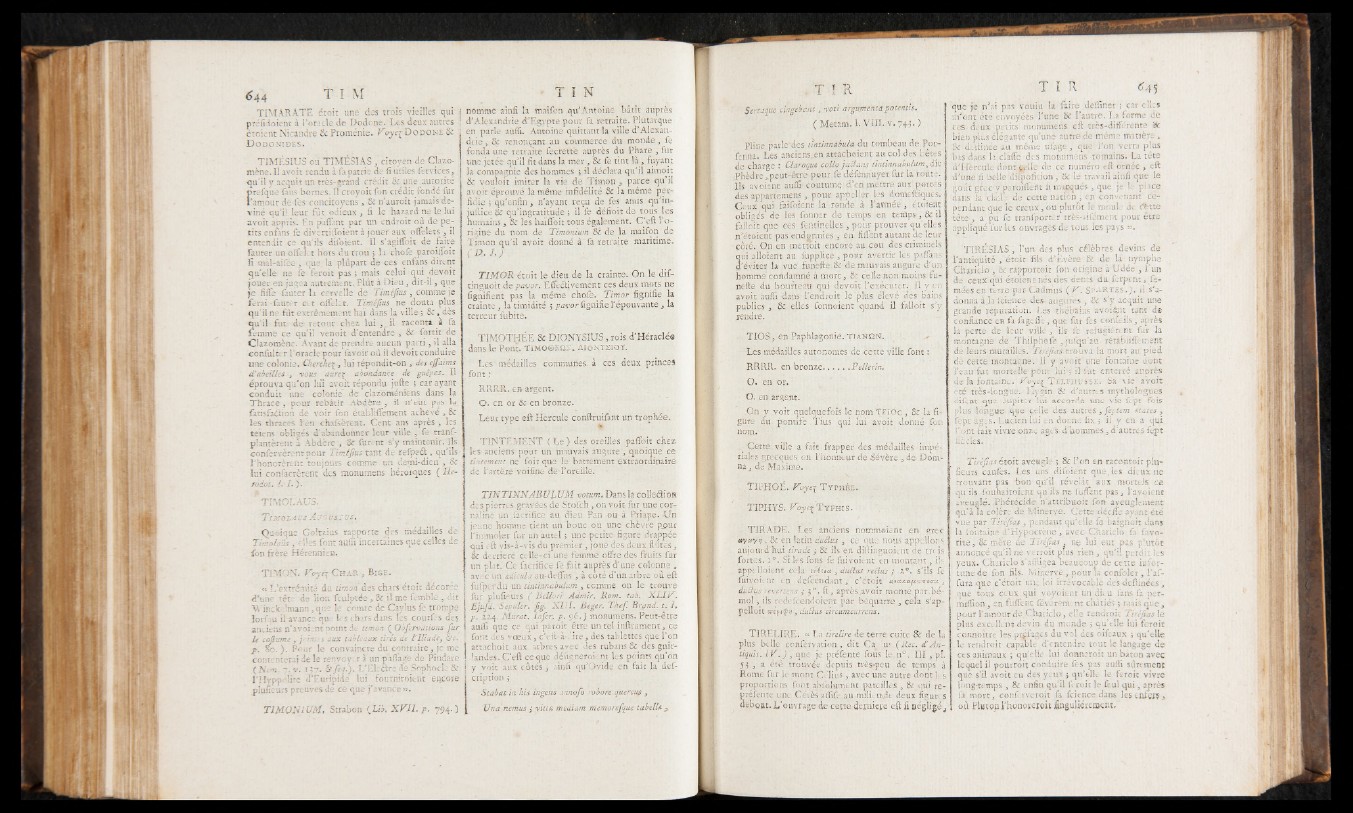 644 T I M
TIMARATE étoit une des trois vieilles qui
présidoient à l'oracle de Dodone. Les deux autres
étoient Nicandre & Proménie. Voyez DODONE &
DODONIDES.
TIMÉSIUS ou TIMÉSIAS, citoyen de Clazo-
mène. Il avoit rendu à sa patrie de si utiles services,
qu'il y acquit un très-grand crédit & une autorité
presque sans bornes. Il croyoit son crédit fondé sur
l'amour de ses concitoyens, & n'auroit jamais de-
viné qu'il leur fût odieux, si le hazard ne le lui
avoit appris. En passant par un endroit où de pe-
tits enfans se divertissoient à jouer aux osselets, il
entendit ce qu'ils disoient. Il s'agissoit de faire
sauter un osselet hors du trou ; la chose paroissoit
si mal-aisée, que la plûpart de ces enfans dirent
qu'elle ne se feroit pas ; mais celui qui devoit
jouer en jugea autrement. Plût à Dieu, dit-il, que
je fisse sauter la cervelle de Timésias, comme je
ferai sauter cet osselet. Timésias ne douta plus
qu'il ne fût extrêmement haï dans la ville ; & , dès
qu'il fut de retour chez lui, il raconta à sa
femme ce qu'il venoit d'entendre, & sortit de
Clazomène. Avant de prendre aucun parti, il alla
consulter l'oracle pour savoir où il devoit conduire
une colonie. Cherchez, lui répondit-on, des essaims
d'abeilles, vous aurez abondance de guêpes. Il
éprouva qu'on lui avoit répondu juste ; car ayant
conduit une colonie de clazoméniens dans la
Thrace, pour rebâtir Abdère, il n'eut pas la
satisfaction de voir son établissement achevé, &
les thraces l'en chassèrent. Cent ans après, les
teiens obligés d'abandonner leur ville, se trans-
plantèrent à Abdère, & surent s'y maintenir. Ils
conservèrent pour Timésias tant de respect, qu'ils
l'honorèrent toujours comme un demi-dieu, &
lui consacrèrent des monumens héroïques ( He-
rodot. l. I. ).
TIMOLAUS.
TIMOLAUS AUGUSTUS.
Quoique Goltzius rapporte des médailles de
Timolaüs, elles sont aussi incertaines que celles de
son frère Hérennien.
TIMON. Voyez CHAR, BIGE.
« L'extrémité du timon des chars étoit décorée
d'une tête de lion sculptée, & il me semble, dit
Winckelmann, que le comte de Caylus se trompe
lorsqu'il avance que les chars dans les courses des
anciens n'avoient point de timon ( Observations sur
le costume, jointes aux tableaux tirés de l'Iliade, &c.
p. 80. ). Pour le convaincre du contraire, je me
contenterai de le renvoyer à un passage de Pindare
( Nem. 7. v. 137. & seq. ). L'Electre de Sophocle &
l'Hyppolite d'Euripide lui fourniroient encore
plusieurs preuves de ce que j'avance ».
TIMONIUM, Strabon ( Lib. XVII. p. 794. )
T I N
nomme ainsi la maison qu'Antoine bâtit auprès
d'Alexandrie d'Egypte pour sa retraite. Plutarque
en parle aussi. Antoine quittant la ville d'Alexan-
drie, & renonçant au commerce du monde, se
fonda une retraite secrette auprès du Phare, sur
une jetée qu'il fit dans la mer, & se tint là, fuyant
la compagnie des hommes ; il déclara qu'il aimoit
& vouloit imiter la vie de Timon, parce qu'il
avoit éprouvé la même infidélité & la même per-
fidie ; qu'enfin, n'ayant reçu de ses amis qu'in-
justice & qu'ingratitude, il se défioit de tous les
humains, & les haïssoit tous également. C'est l'o-
rigine du nom de Timonium & de la maison de
Timon qu'il avoit donné à sa retraite maritime.
( D. J. )
TIMOR étoit le dieu de la crainte. On le dis-
tinguoit de pavor. Effectivement ces deux mots ne
signifient pas la même chose. Timor signifie la
crainte, la timidité ; pavor signifie l'épouvante, la
terreur subite.
TIMOTHÉE & DIONYSIUS, rois d'Héraclée
dans le Pont. ΤΙΜΟΘΕΟΥ. ΔΙΟΝΥΣΙΟΥ.
Les médailles communes à ces deux princes
sont :
RRRR. en argent.
O. en or & en bronze.
Leur type est Hercule construisant un trophée.
TINTEMENT ( Le ) des oreilles passoit chez
les anciens pour un mauvais augure, quoique ce
tintement ne soit que le battement extraordinaire
de l'artère voisine de l'oreille.
TINTINNABULUM votum. Dans la collection
des pierres gravées de Stosch, on voit sur une cor-
naline un sacrifice au dieu Pan ou à Priape. Un
jeune homme tient un bouc ou une chèvre pour
l'immoler sur un autel ; une petite figure drappée
qui est vis-à-vis du premier, joue des deux flûtes,
& derrière celle-ci une femme offre des fruits sur
un plat. Ce sacrifice se fait auprès d'une colonne,
avec un au-dessus, à côté d'un arbre où est
suspendu un tintinnabulum, comme on le trouve
sur plusieurs ( Bellori Admir. Rom. tab. XLIV.
Ejusd. Sepolcr. fig. XLI. Beger. Thes. Brand. t. I.
p. 224. Murat. Inscr. p. 96. ) monumens. Peut-être
aussi que ce qui paroît être un tel instrument, ce
sont des vœux, c'est-à-dire, des tablettes que l'on
attachoit aux arbres avec des rubans & des guir-
landes. C'est ce que dénoteroient les points qu'on
y voit aux côtés, ainsi qu'Ovide en fait la des-
cription ;
Stabat in his ingens annoso robore quercus,
Una nemus ; vittæ mediam memoresque tabellæ,
T I R
Sertaque cingebant, voti argumenta potentis.
( Metam. l. VIII. v. 743. )
Pline parle des tintinnabula du tombeau de Por-
senna. Les anciens en attachoient au col des bêtes
de charge : Claroque collo jactans tintinnabulum, dit
Phèdre, peut-être pour se désennuyer sur la route.
Ils avoient aussi coutume d'en mettre aux portes
des appartemens, pour appeller les domestiques.
Ceux qui faisoient la ronde à l'armée, étoient
obligés de les sonner de temps en temps, & il
falloit que ces sentinelles, pour prouver qu'elles
n'étoient pas endormies, en fissent autant de leur
côté. On en mettoit encore au cou des criminels
qui alloient au supplice, pour avertir les passans
d'éviter la vue funeste & de mauvais augure d'un
homme condamné à mort, & celle non moins fu-
neste du bourreau qui devoit l'exécuter. Il y en
avoit aussi dans l'endroit le plus élevé des bains
publics, & elles sonnoient quand il falloit s'y
rendre.
TIOS, en Paphlagonie. ΤΙΑΝΩΝ.
Les médailles autonomes de cette ville sont :
RRRR. en bronze. . . . . . Pellerin.
O. en or.
O. en argent.
On y voit quelquefois le nom ΤΕΙΟC, & la fi-
gure du pontife Tius qui lui avoit donné son
nom.
Cette ville a fait frapper des médailles impé-
riales grecques en l'honneur de Sévère, de Dom-
na, de Maxime.
TIPHOÉ. Voyez TYPHÉE.
TIPHYS. Voyez TYPHIS.
TIRADE. Les anciens nommoient en grec
αγωγη, & en latin ductus, ce que nous appellons
aujourd'hui tirade ; & ils en distinguoient de trois
sortes. 1°. Si les sons se suivoient en montant, ils
appelloient cela , ductus rectus ; 2°. s'ils se
suivoient en descendant, c'étoit ,
ductus revertens ; 3°. si, après avoir monté par bé-
mol, ils redescendoient par béquarre, cela s'ap-
pelloit , ductus circumcurrens.
TIRELIRE. « La tirelire de terre cuite & de la
plus belle conservation, dit Caylus ( Rec. d'An-
tiquit. IV. ), que je présente sous le n°. III, pl.
53, a été trouvée depuis très-peu de temps à
Rome sur le mont Celius, avec une autre dont les
proportions sont absolument pareilles, & qui re-
présente une Cérès assise au milieu de deux figures
debout. L'ouvrage de cette dernière est si négligé,
T I R 645
que je n'ai pas voulu la faire dessiner ; car elles
m'ont été envoyées l'une & l'autre. La forme de
ces deux petits monumens est très-différente &
bien plus élégante qu'une autre de même matière,
& destinée au même usage, que l'on verra plus
bas dans la classe des monumens romains. La tête
d'Hercule dont celle de ce numéro est ornée, est
d'une si belle disposition, & le travail ainsi que le
goût grec y paroissent si marqués, que je la place
dans la classe de cette nation, en convenant ce-
pendant que le creux, ou plutôt le moule de cette
tête, a pu se transporter très-aisément pour être
appliqué sur les ouvrages de tous les pays ».
TIRÉSIAS, l'un des plus célèbres devins de
l'antiquité, étoit fils d'Evère & de la nymphe
Chariclo, & rapportoit son origine à Udée, l'un
de ceux qui étoient nés des dents du serpent, se-
mées en terre par Cadmus ( V. SPARTES. ), il s'a-
donna à la science des augures, & s'y acquit une
grande réputation. Les thébains avoient tant de
confiance en sa sagesse, que sur ses conseils, après
la perte de leur ville, ils se réfugièrent sur la
montagne de Thilphose, jusqu'au rétablissement
de leurs murailles. Tirésias trouva la mort au pied
de cette montagne. Il y avoit une fontaine dont
l'eau fut mortelle pour lui ; il fut enterré auprès
de la fontaine. Voyez TELPHUSSE. Sa vie avoit
été très-longue. Hygin & d'autres mythologues
disent que Jupiter lui accorda une vie sept fois
plus longue que celle des autres, septem ætates,
sept âges. Lucien lui en donne six ; il y en a qui
l'ont fait vivre onze âges d'hommes, d'autres sept
siècles.
Tirésias étoit aveugle ; & l'on en racontoit plu-
sieurs causes. Les uns disoient que les dieux ne
trouvant pas bon qu'il révélât aux mortels ce
qu'ils souhaitoient qu'ils ne sussent pas, l'avoient
aveuglé. Phérécide n'attribuoit son aveuglement
qu'à la colère de Minerve. Cette déesse ayant été
vue par Tirésias, pendant qu'elle se baignoit dans
la fontaine d'Hypocrène, avec Chariclo sa favo-
rite, & mère de Tirésias, ne lui eut pas plutôt
annoncé qu'il ne verroit plus rien, qu'il perdit les
yeux. Chariclo s'affligea beaucoup de cette infor-
tune de son fils. Minerve, pour la consoler, l'as-
sura que c'étoit une loi irrévocable des destinées,
que tous ceux qui voyoient un dieu sans sa per-
mission, en fussent sévèrement châtiés ; mais que,
pour l'amour de Chariclo, elle rendroit Tirésias le
plus excellent devin du monde ; qu'elle lui feroit
connoître les présages du vol des oiseaux ; qu'elle
le rendroit capable d'entendre tout le langage de
ces animaux ; qu'elle lui donneroit un bâton avec
lequel il pourroit conduire ses pas aussi sûrement
que s'il avoit eu des yeux ; qu'elle le feroit vivre
long-temps, & enfin qu'il seroit le seul qui, après
sa mort, conserveroit sa science dans les enfers,
où Pluton l'honoreroit singulièrement.